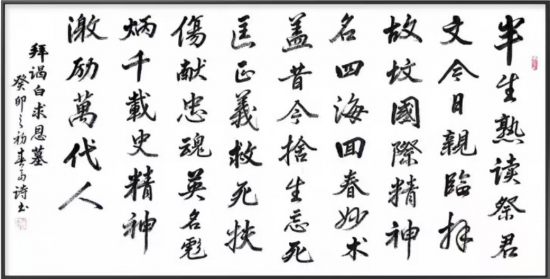 半生熟读祭君
文今日親臨拜
故坟國際精神
名四海回春妙术
盖昔今捨生忘死
匡正義救死扶
傷献忠魂英名彪
炳千載史精神
激励萬代人
拜谒白求恩墓
癸卯之初春 诗书